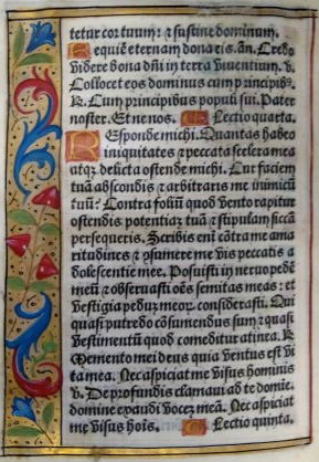 tetur cor tuum: ⁊ sustine dominum.
Requiē eternam dona eis. añ. Credo
videre bona dñi in terra viuentium. v.
Collocet eos dominus cum p̄ncipibꝰ.
R. Cum principibus populi sui. Pater
noster. Et ne nos. Lectio quarta.
Responde michi. Quantas habeo
iniquitates ⁊ peccata scelera mea
atqꝫ delicta ostende michi. Cur faciem
tuā abscondis ⁊ arbitraris me inimicū
tuū? Contra foliū quod vento rapitur
ostendis potentiaꝫ tuā ⁊ stipulam siccā
persequeris. Scribis enī cōtra me ama
ritudines ⁊ ꝯsumere me vis peccatis a
dolescentie mee. Posuisti in neruo pedē
meū ⁊ obseruasti oēs semitas meas: et
vestigia peduꝫ meoꝝ considerasti. Qui
quasi putredo cōsumendus sum ⁊ quasi
vestimentū quod comeditur a tinea. R.
Memento mei deus quia ventus est vi
ta mea. Nec aspiciat me visus hominis
v. De profundis clamaui ad te domie.
domine exaudi voceꝫ meā. Nec aspiciat
me visus hoīs. Lectio quinta.